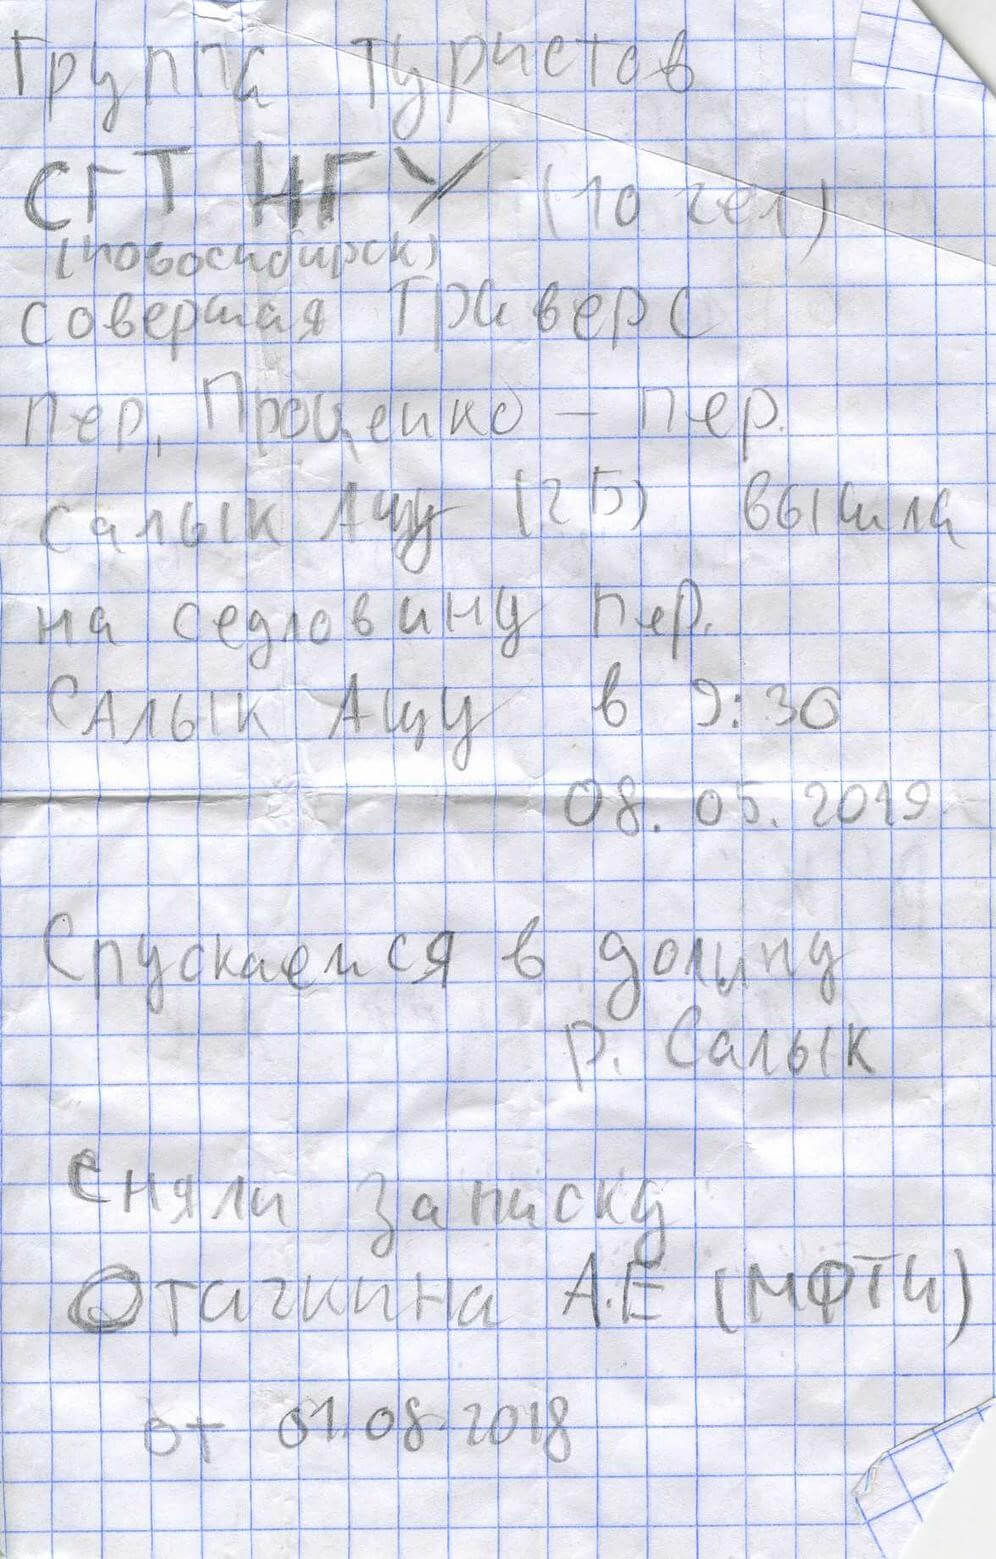 Группа туристов
СГТ НГУ (10 чел)
(Новосибирск)
совершая траверс
пер. Проценко – пер.
Салык Ашу (2Б) вышла
на седловину пер.
Салык Ашу в 9:30
08.05.2019
Спускаемся в долину
р. Салык
Сняли записку
Отачкина А.Е (МФТИ)
от 01.08.2018